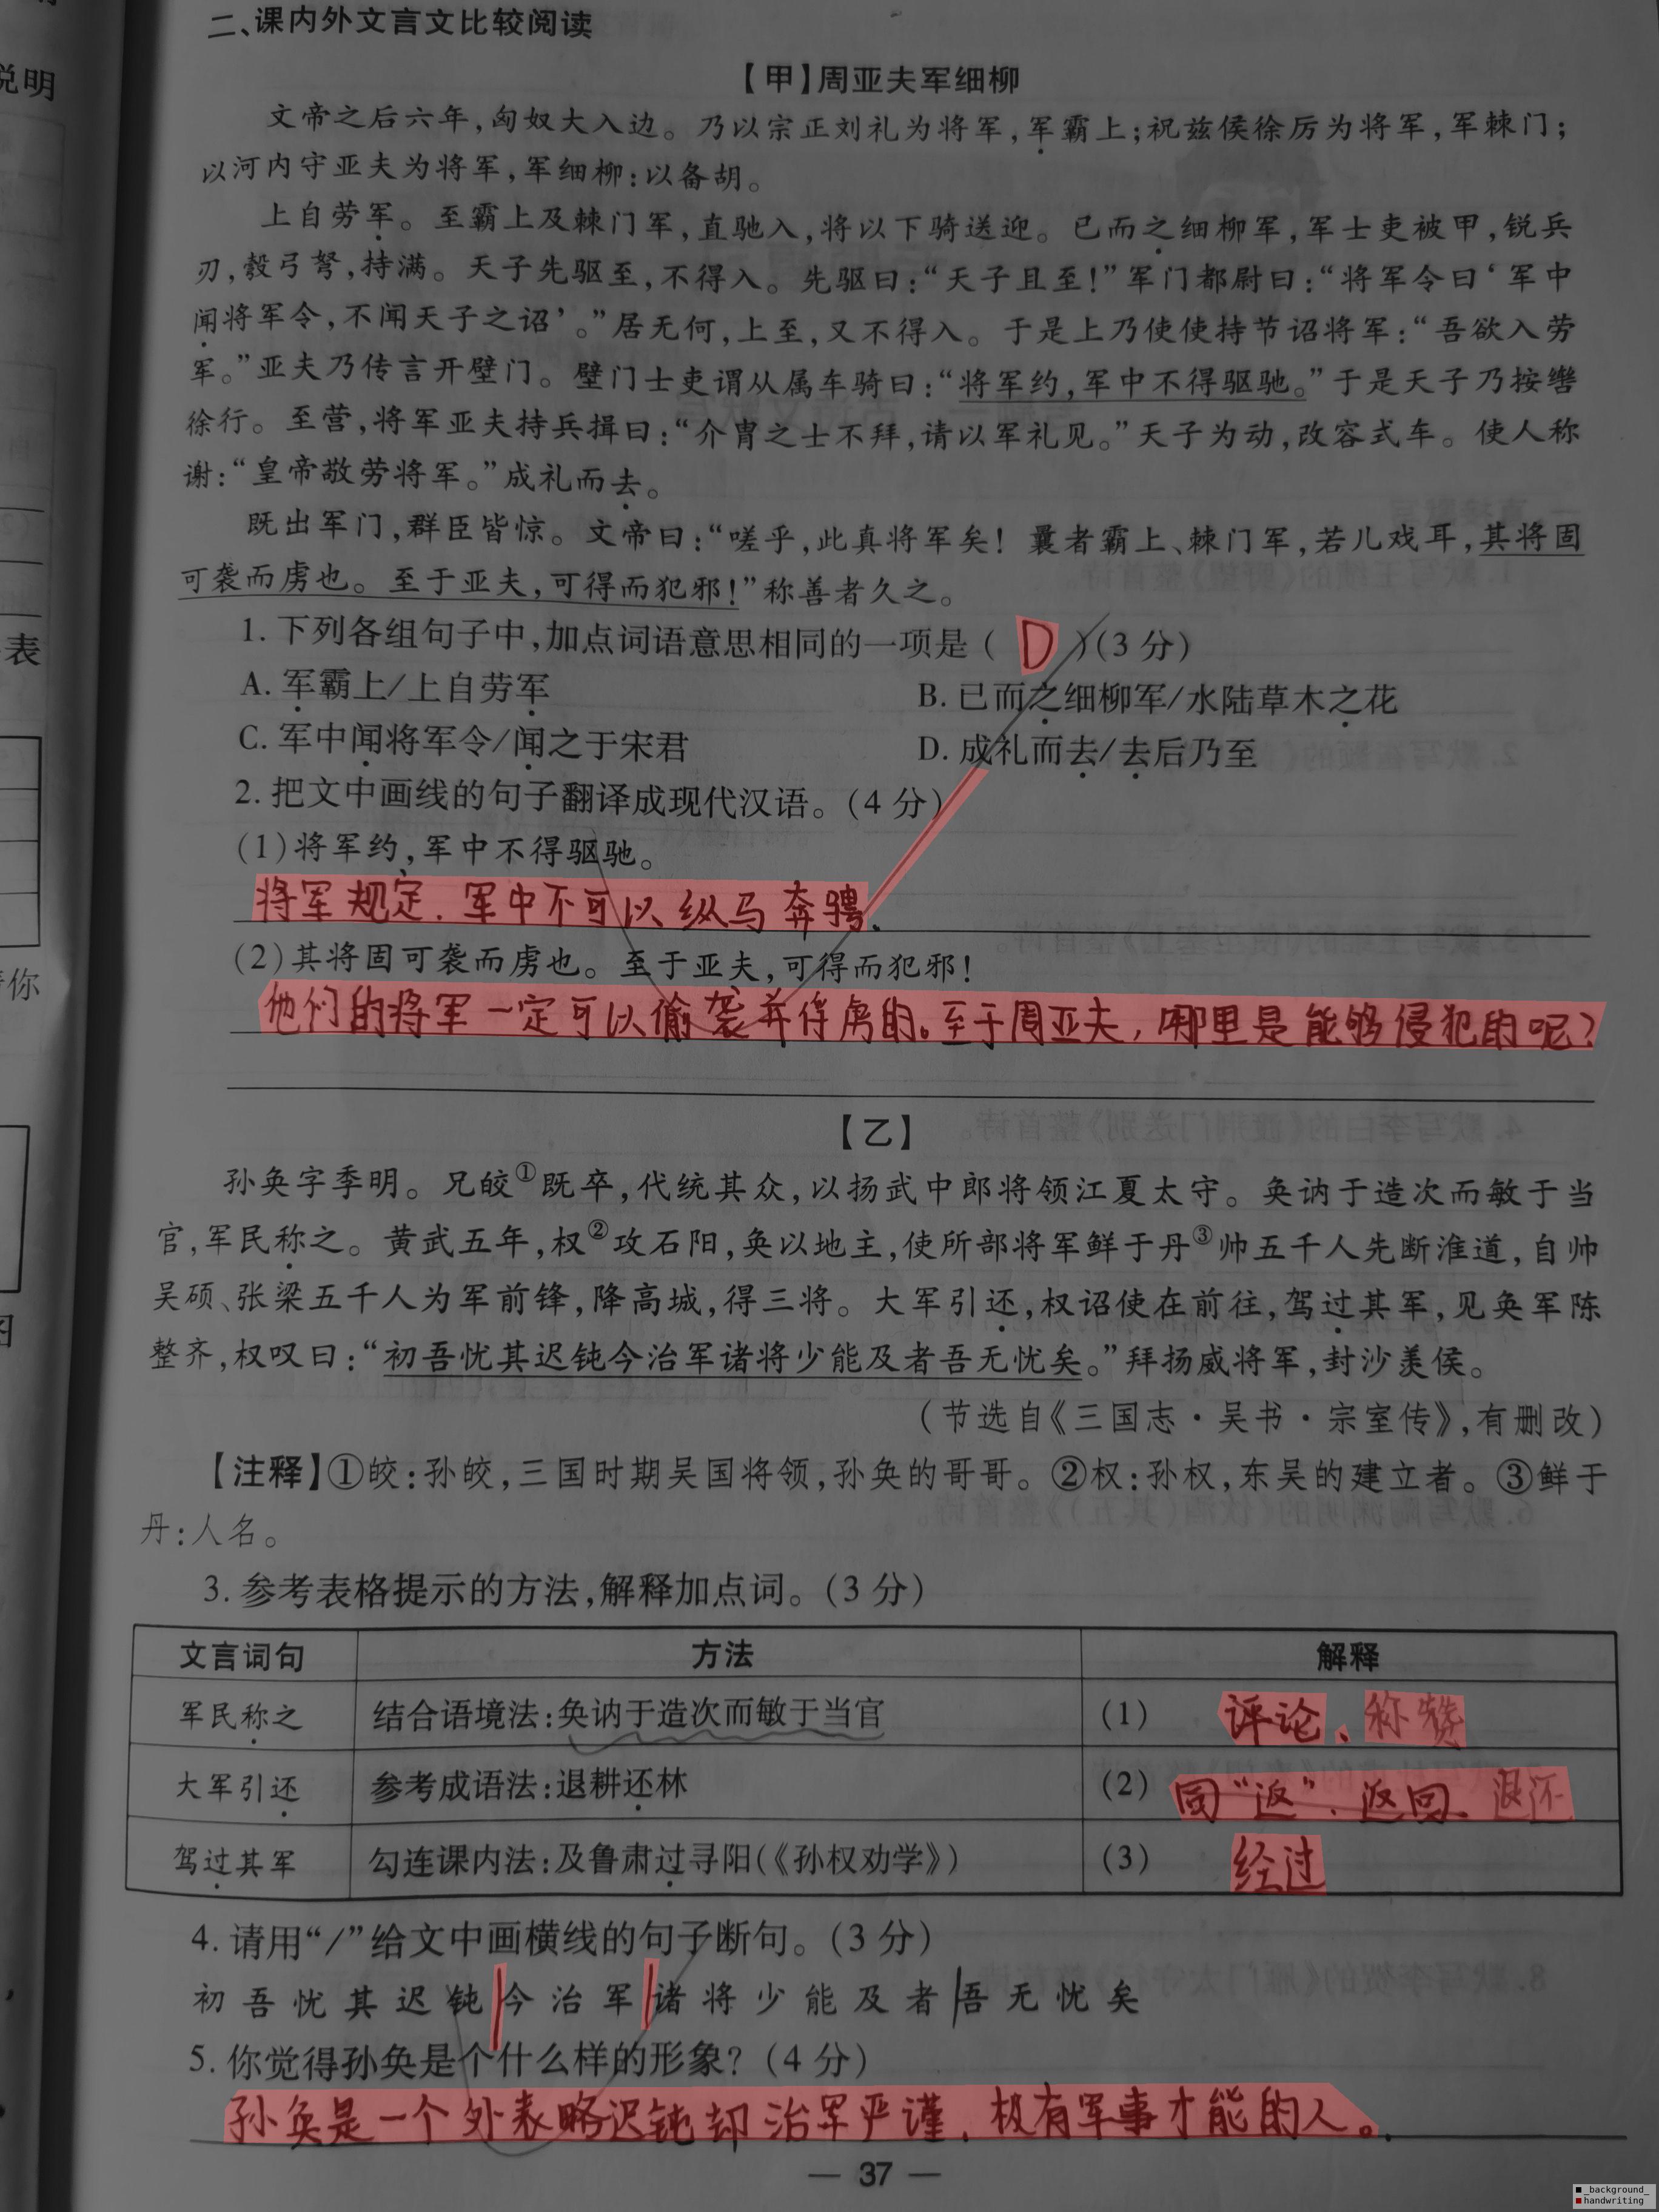 二、课内外文言文比较阅读
【甲】周亚夫军细柳
文帝之后六年,匈奴大入边。乃以宗正刘礼为将军,军霸上;祝兹侯徐厉为将军,军棘门;
以河内守亚夫为将军,军细柳:以备胡。
上自劳军。至霸上及棘门军,直驰入,将以下骑送迎。已而之细柳军,军士吏被甲,锐兵
刃,彀弓弩,持满。天子先驱至,不得入。先驱曰:“天子且至!”军门都尉曰:“将军令曰‘军中
闻将军令,不闻天子之诏’。”居无何,上至,又不得入。于是上乃使使持节诏将军:“吾欲入劳
军。”亚夫乃传言开壁门。壁门士吏谓从属车骑曰:“将军约,军中不得驱驰。”于是天子乃按辔
徐行。至营,将军亚夫持兵揖曰:“介胄之士不拜,请以军礼见。”天子为动,改容式车。使人称
谢:“皇帝敬劳将军。”成礼而去。
既出军门,群臣皆惊。文帝曰:“嗟乎,此真将军矣!曩者霸上、棘门军,若儿戏耳,其将固
可袭而虏也。至于亚夫,可得而犯邪!”称善者久之。
1. 下列各组句子中,加点词语意思相同的一项是( D )(3 分)
A. 军霸上/上自劳军 B. 已而之细柳军/水陆草木之花
C. 军中闻将军令/闻之于宋君 D. 成礼而去/去后乃至
2. 把文中画线的句子翻译成现代汉语。(4 分)
(1)将军约,军中不得驱驰。
将军规定.军中不可以纵马奔骋.
(2)其将固可袭而虏也。至于亚夫,可得而犯邪!
他们的将军一定可以偷袭并俘虏的。至于周亚夫,哪里是能够侵犯的呢?
【乙】
孙奂字季明。兄皎①既卒,代统其众,以扬武中郎将领江夏太守。奂讷于造次而敏于当
官,军民称之。黄武五年,权②攻石阳,奂以地主,使所部将军鲜于丹③帅五千人先断淮道,自帅
吴硕、张梁五千人为军前锋,降高城,得三将。大军引还,权诏使在前往,驾过其军,见奂军陈
整齐,权叹曰:“初吾忧其迟钝今治军诸将少能及者吾无忧矣。”拜扬威将军,封沙羡侯。
(节选自《三国志·吴书·宗室传》,有删改)
【注释】①皎:孙皎,三国时期吴国将领,孙奂的哥哥。②权:孙权,东吴的建立者。③鲜于
丹:人名。
3. 参考表格提示的方法,解释加点词。(3 分)
文言词句 方法 解释
军民称之 结合语境法:奂讷于造次而敏于当官 (1) 评论、称赞
大军引还 参考成语法:退耕还林 (2) 同“返”.返回、退还
驾过其军 勾连课内法:及鲁肃过寻阳(《孙权劝学》) (3) 经过
4. 请用“/”给文中画横线的句子断句。(3 分)
初吾忧其迟钝|今治军|诸将少能及者|吾无忧矣
5. 你觉得孙奂是个什么样的形象?(4 分)
孙奂是一个外表略迟钝却治军严谨.极有军事才能的人。
— 37 —
说明
表
你
_background_
handwriting